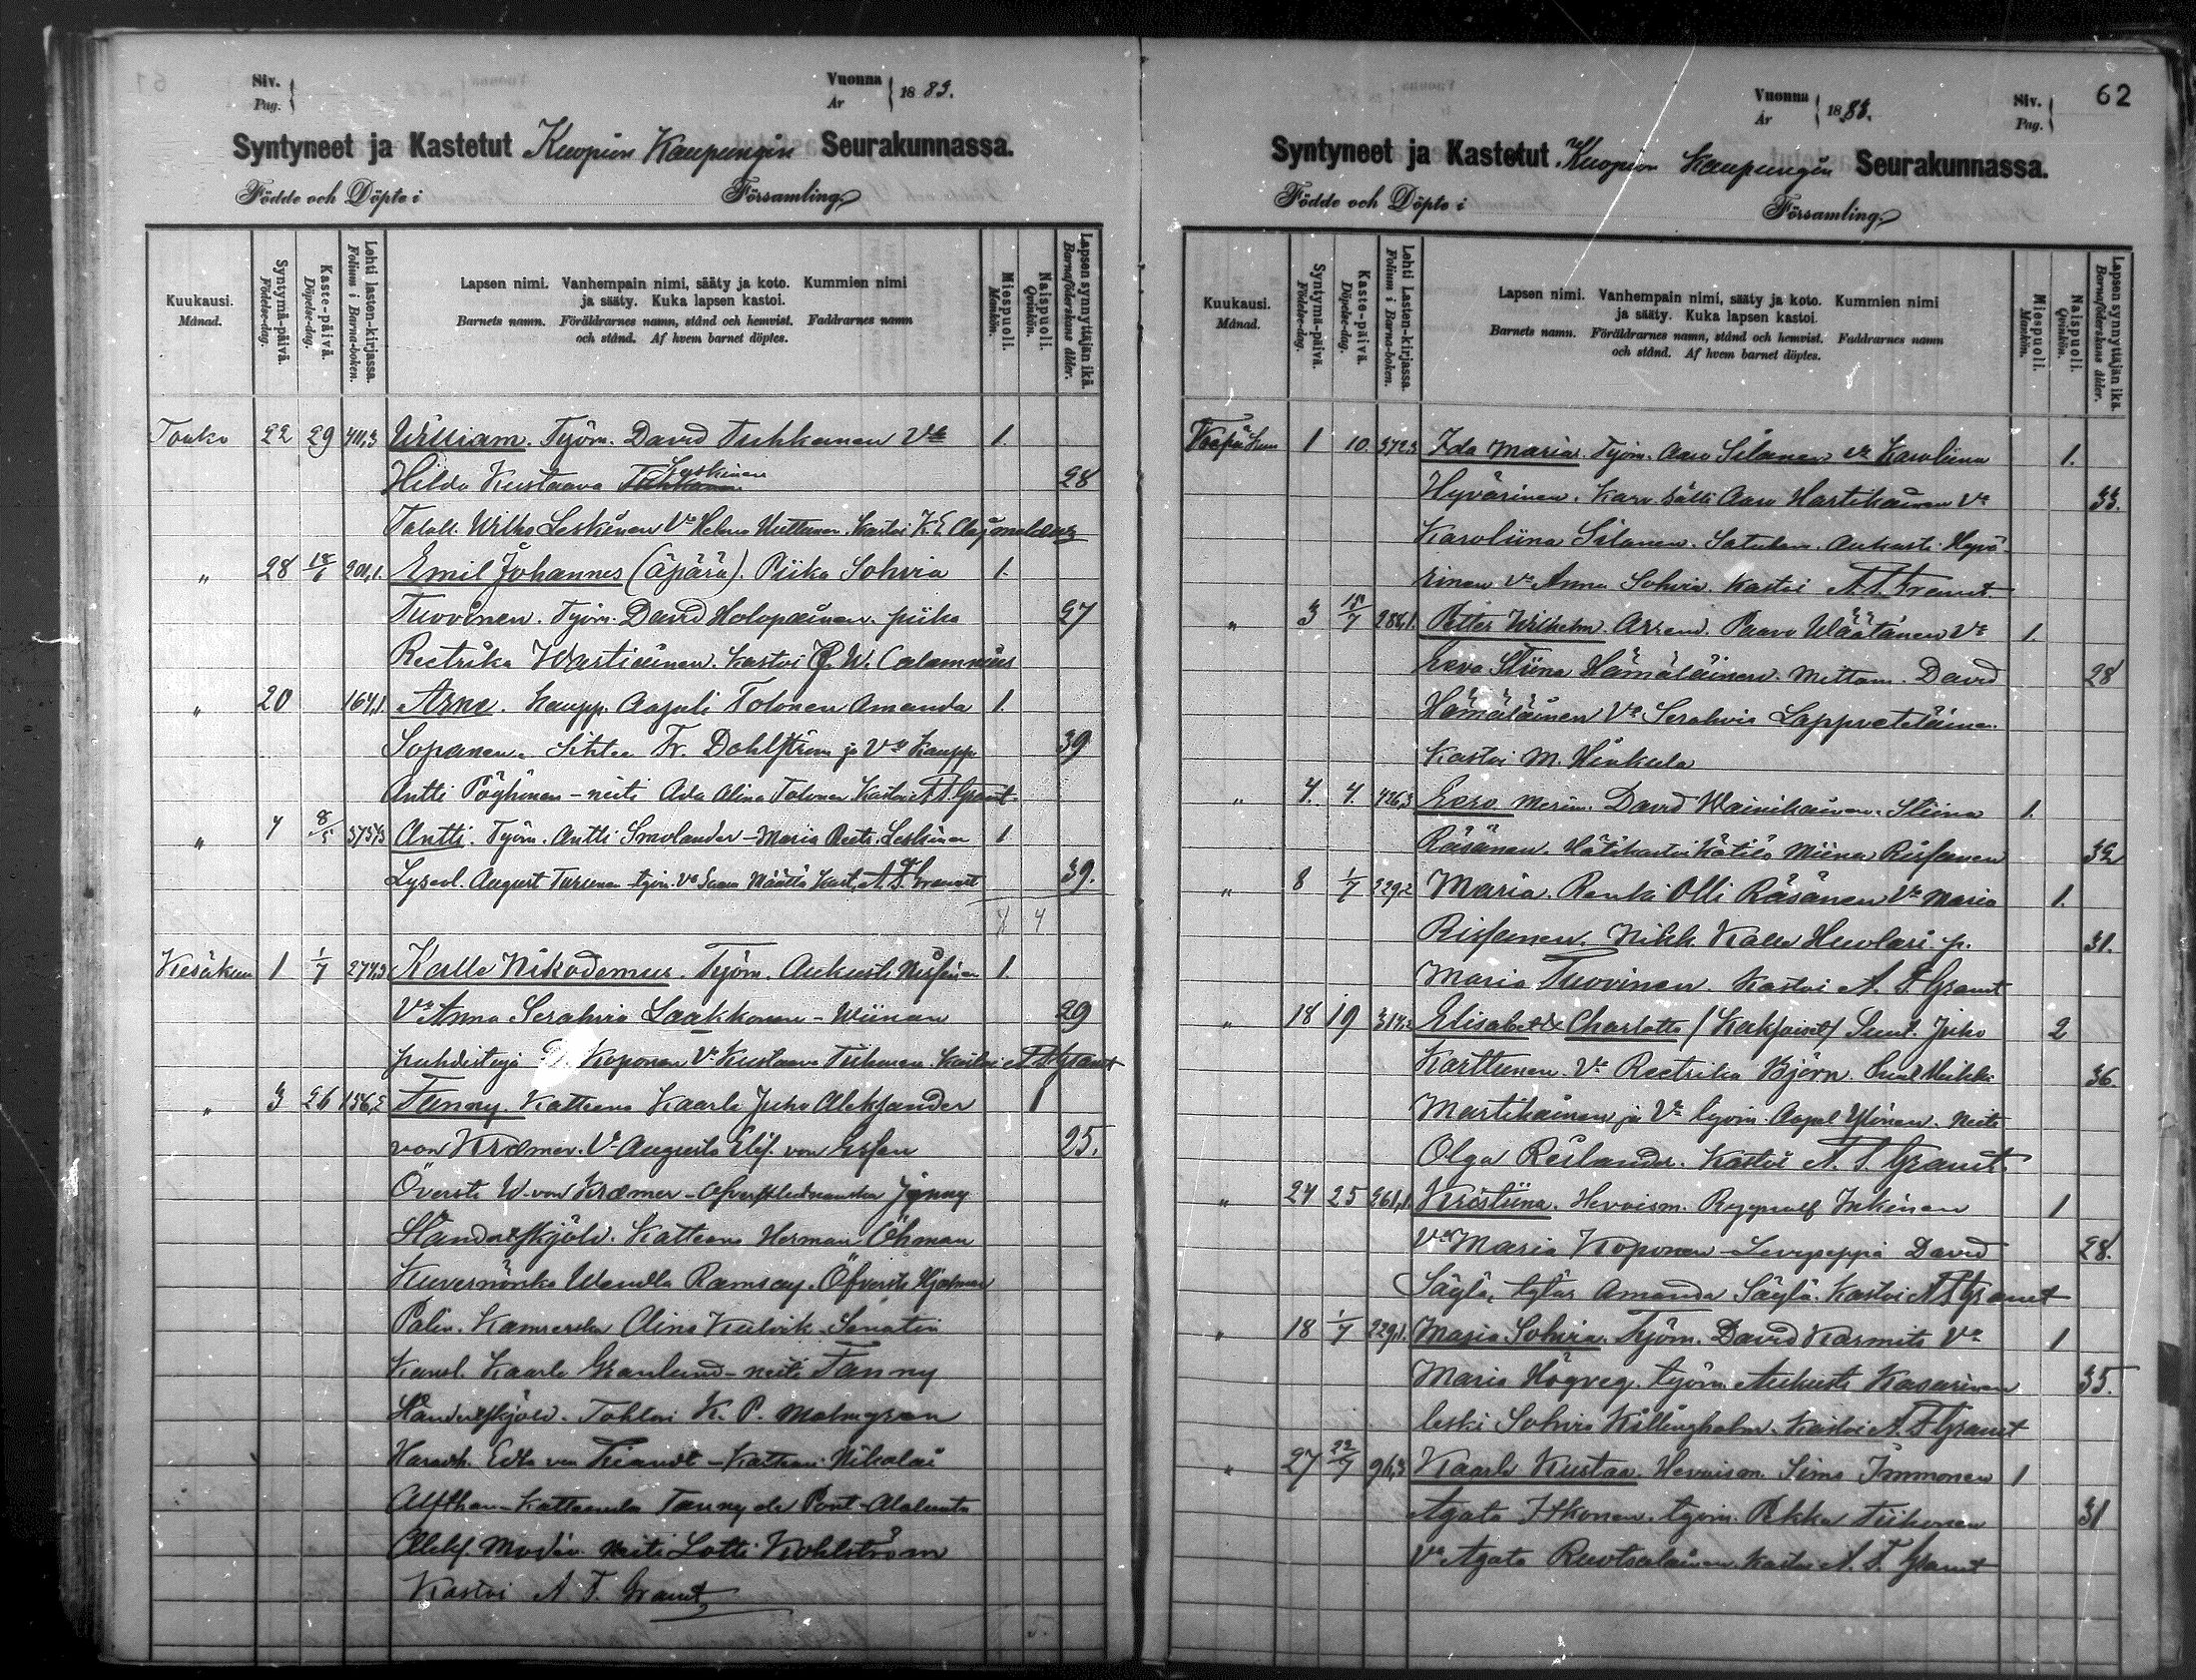 Siv.
Pag.
Vuonna
År
1883.
Syntyneet ja Kastetut Kuopion Kaupungin Seurakunnassa.
Födde och Döpte i Församling
Kuukausi.
Månad.
Syntymä-päivä.
Födelse-dag.
Kaste-päivä.
Döpelse-dag.
Lehti lasten-kirjassa.
Folium i Barna-boken.
Lapsen nimi. Vanhempain nimi, sääty ja koto. Kummien nimi
ja sääty. Kuka lapsen kastoi.
Barnets namn. Föräldrarnes namn, stånd och hemvist. Faddrarnes namn
och stånd. Af hvem barnet döptes.
Miespuoli.
Mankön.
Naispuoli.
Qvinkön.
Lapsen synnyttäjän ikä.
Barnaföderskans ålder.
Touko 22 29 411,3 William. Työm. David Tuhkanen Vo 1.
Hilda Kustaava Leskinen 28
Wilho Leskinen Vo Helena Kastoi K. E.
" 28 18/6 201,1. Emil Johannes (äpärä). Piika Sohvia 1.
Tuovinen. Työm. David Holopainen. piika 27
Reetrika Wartiainen. Kastoi W. Calamnius
" 20 164,1 Arne. Kaupp. Aapeli Tolonen Amanda 1.
Sopanen. Fr. Dahlström ja Vo Kaupp. 39
Antti Pöyhönen - neiti Ada Alina Tolonen. Kastoi A. F. Granit
" 7 8/5 Antti. Työm. Antti Smolander - Maria Reeta Leskinen 1.
August Turunen työm. Vo Määttä Kast. A. F. Granit 39.
8 4
Kesäkuu 1 1/7 274,3 Kalle Nikodemus. Työm. Aukusti Nissinen 1.
Vo Anna Serahvia Laakkonen - Wiinan 29
puhdistaja Koponen Vo Kustaava Kastoi A. F. Granit
" 3 26 156,2 Fanny. Katteeni Kaarle Juho Aleksander 1
von Kræmer. Vo Augusta Elis. von Essen 25.
Översti W. von Kræmer - Jenny
Händelskjöld. Katteeni Herman Öhman
Wendla Ramsay. Öfversti Hjalmar
Palin. Alina
Kansl. Kaarle Granlund - neiti Fanny
Tohtori K. P. Malmgren
Haradh. Edla von Fieandt - Katteeni Nikolai
Alfthan - Fanny de Pont -
Aleks. neiti Lotti Kohlström
Kastoi A. F. Granit
62
Vuonna
År
1883.
Siv.
Pag.
Syntyneet ja Kastetut Kuopion Kaupungin Seurakunnassa.
Födde och Döpte i Församling.
Kuukausi.
Månad.
Syntymä-päivä.
Födelse-dag.
Kaste-päivä.
Döpelse-dag.
Lehti Lasten-kirjassa.
Folium i Barna-boken.
Lapsen nimi. Vanhempain nimi, sääty ja koto. Kummien nimi
ja sääty. Kuka lapsen kastoi.
Barnets namn. Föräldrarnes namn, stånd och hemvist. Faddrarnes namn
och stånd. Af hvem barnet döptes.
Miespuoli.
Mankön.
Naispuoli.
Qvinkön.
Lapsen synnyttäjän ikä.
Barnaföderskans ålder.
Kesäkuu 1 10. 372,3 Ida Maria. Työm. Aaro Silanen Vo Karoliina 1.
Hyvärinen. Karv. sälli Aaro Hartikainen Vo 33.
Karoliina Silanen. Aukusti Hyvä-
rinen Vo Anna Sohvia. Kastoi A. F. Granit.
" 3 15/7 286,1. Petter Wilhelm. Arrend. Paavo Wäätänen Vo 1.
Eeva Stiina Hämäläinen. David 28
Hämäläinen Vo Serahvia Lappveteläinen.
Kastoi M. Hinkula
" 4. 4. 426,3 Eero. Merim. David Wainikainen. Stiina 1.
Räsänen. Hätäkastoi Kätilö Miina Rissanen 32
" 8 1/7 229,2 Maria. Renki Olli Räsänen Vo Maria 1.
Rissanen. Nikk. Kalle Huolari p. 31.
Maria Tuovinen. Kastoi A. F. Granit
" 18 19 314,2 Elisabet & Charlotta (Kaksoiset) Suut. Juho 2
Karttunen. Vo Reetrika Björn. Suut. Heikki 36.
Martikainen ja Vo työm. Aapel Ylönen. Neiti
Olga Reilander. Kastoi A. F. Granit.
" 24 25 261,1 Kristiina. Hevoism. Inkinen 1
Vo Maria Koponen - Levyseppä David 28.
Säylä, tytär Amanda Säylä. Kastoi A. F. Granit
" 18 1/7 229,1. Maria Sohvia. Työm. David Karmits Vo 1
Maria Högveg. työm. Aukusti Kasurinen 35.
leski Sohvia Killingholm. Kastoi A. F. Granit
" 27 22/7 96,3 Kaarle Kustaa. Hevoism. Simo Immonen 1
Agata Itkonen. työm. Pekka Tiihonen 31
Vo Agata Ruotsalainen. Kastoi A. F. Granit